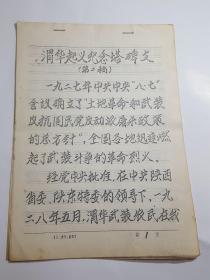 渭华起义纪念塔碑文
(第二稿)
一九二七年中共中央“八·七”
会议确立了“土地革命和武装
反抗国民党反动派屠杀政策
的总方针”，全国各地迅速燃
起了武装斗争的革命烈火。
经党中央批准，在中共陕西
省委、陕东特委的领导下，一九
二八年五月，渭华武装农民，在我
第 1 页